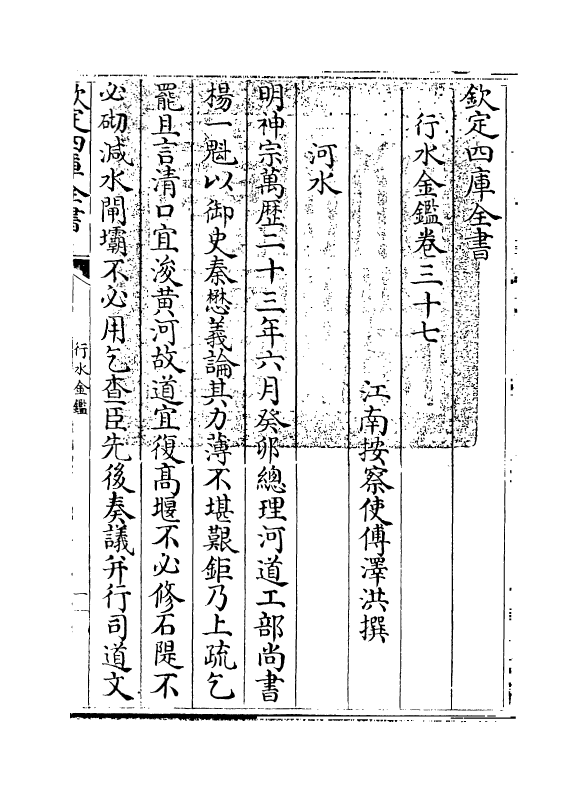 欽定四庫全書
行水金鑑卷三十七
江南按察使傅澤洪撰
河水
明神宗萬歷二十三年六月癸卯總理河道工部尚書
楊一魁以御史秦懋義論其力薄不堪艱鉅乃上疏乞
罷且言清口宜浚黄河故道宜復高堰不必修石隄不
必砌減水閘壩不必用乞查臣先後奏議并行司道文
欽定四庫全書
行水金鑑
一